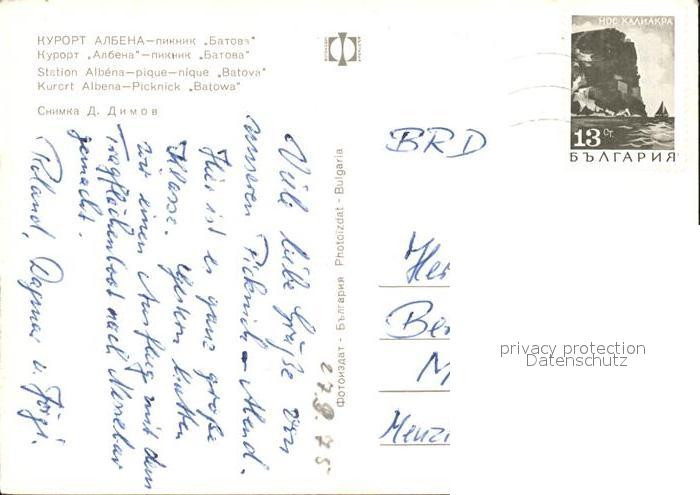 КУРОРТ АЛБЕНА—пикник „Батова“
Курорт „Албена“—пикник „Батова“
Station Albéna—pique-nique „Batova“
Kurort Albena—Picknick „Batowa“
Снимка Д. Димов
Viele liebe Grüße von
unserem Picknick-Abend.
Hier ist es ganz große
Klasse. Gestern hatten
wir einen Ausflug mit dem
Tragflächenboot nach Nessebar
gemacht.
Roland, Dagmar u. Jörg.
Фотоиздат - България Photoizdat - Bulgaria
27.9.75
НОС КАЛИАКРА
13 СТ.
БЪЛГАРИЯ
BRD
Her
Ber
M
Menzi
privacy protection
Datenschutz